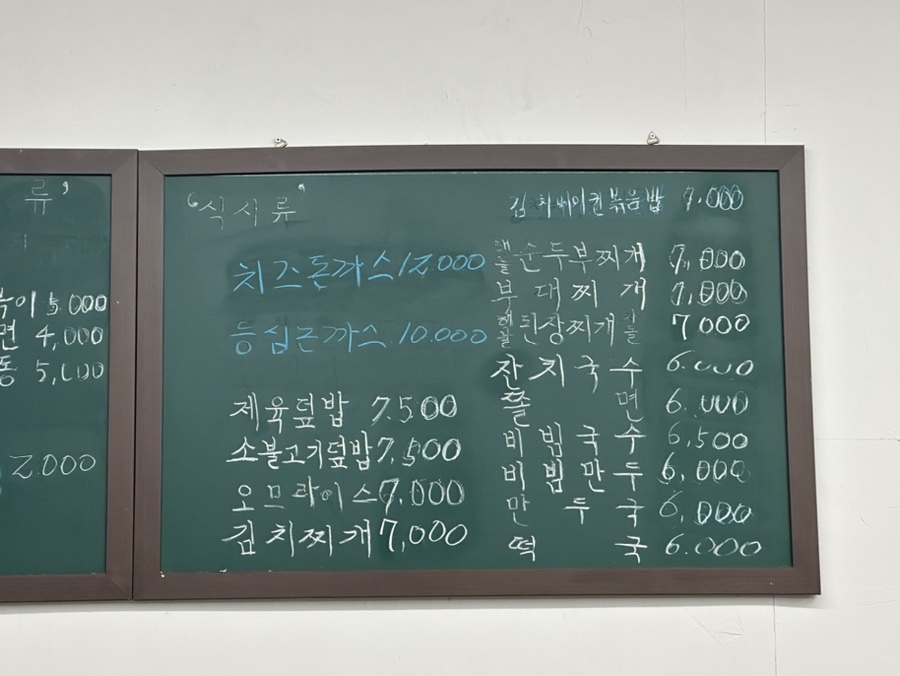 류’
복이 5.000
면 4,000
동 5,000
2.000
‘식사류’
치즈돈까스 12.000
등심돈까스 10.000
제육덮밥 7.500
소불고기덮밥 7,500
오므라이스 7.000
김치찌개 7,000
김치베이컨볶음밥 7.000
해물순두부찌개 7,000
부대찌개 7,000
해물된장찌개 7000
잔치국수 6.000
쫄면 6.000
비빔국수 6,500
비빔만두 6,000
만두국 6,000
떡국 6.000